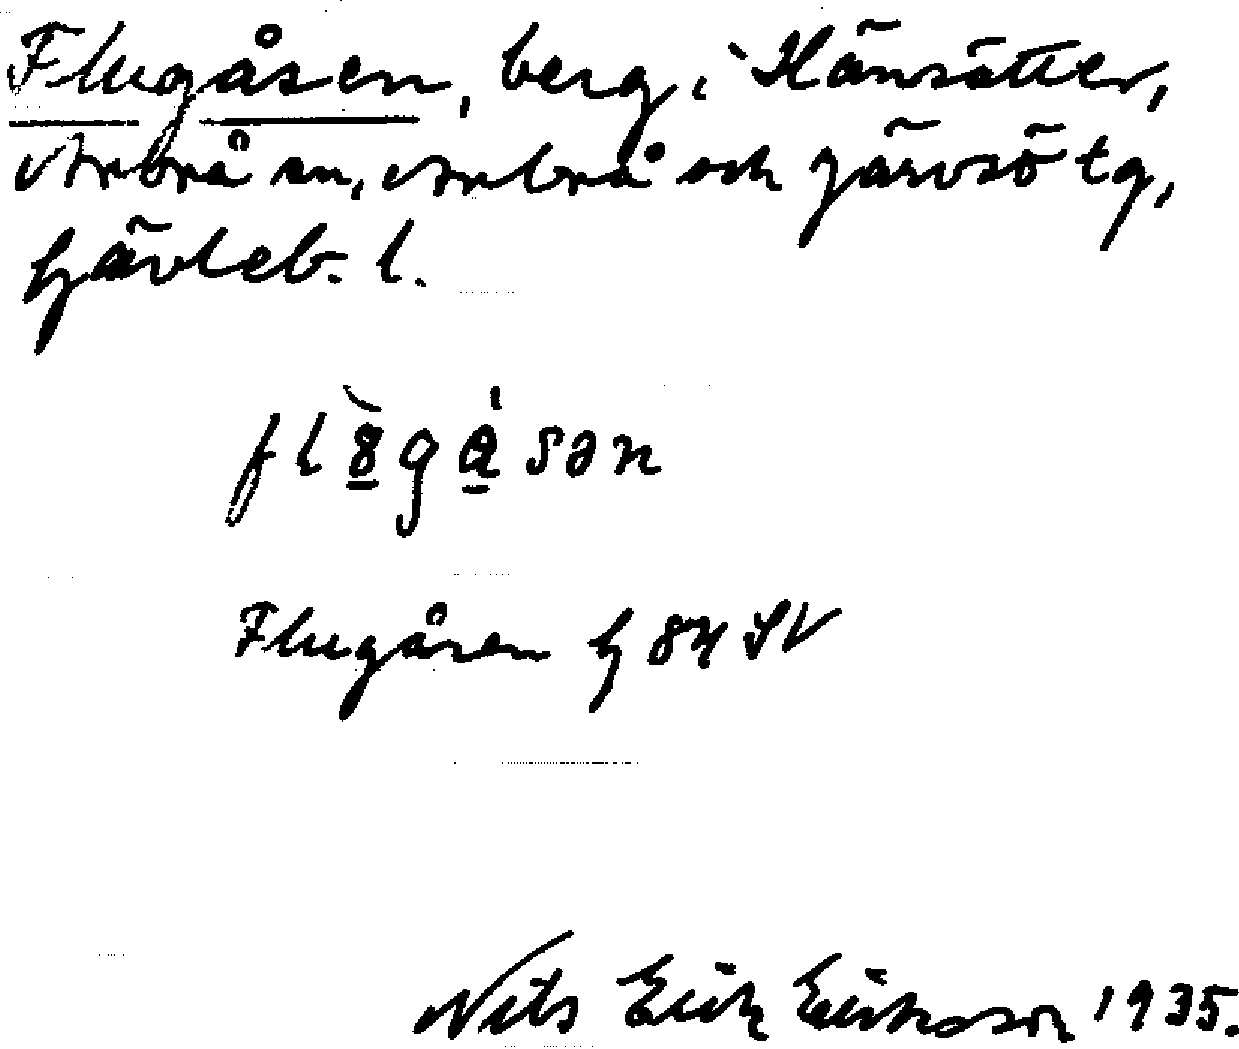 Flugåsen, berg i Känsätter,
Arbrå sn, Arbrå och Järvsö tg,
Gävleb. l.
flȣ̀gåsən
Flugåsen G 84 SV
Nils Erik Eriksson 1935.